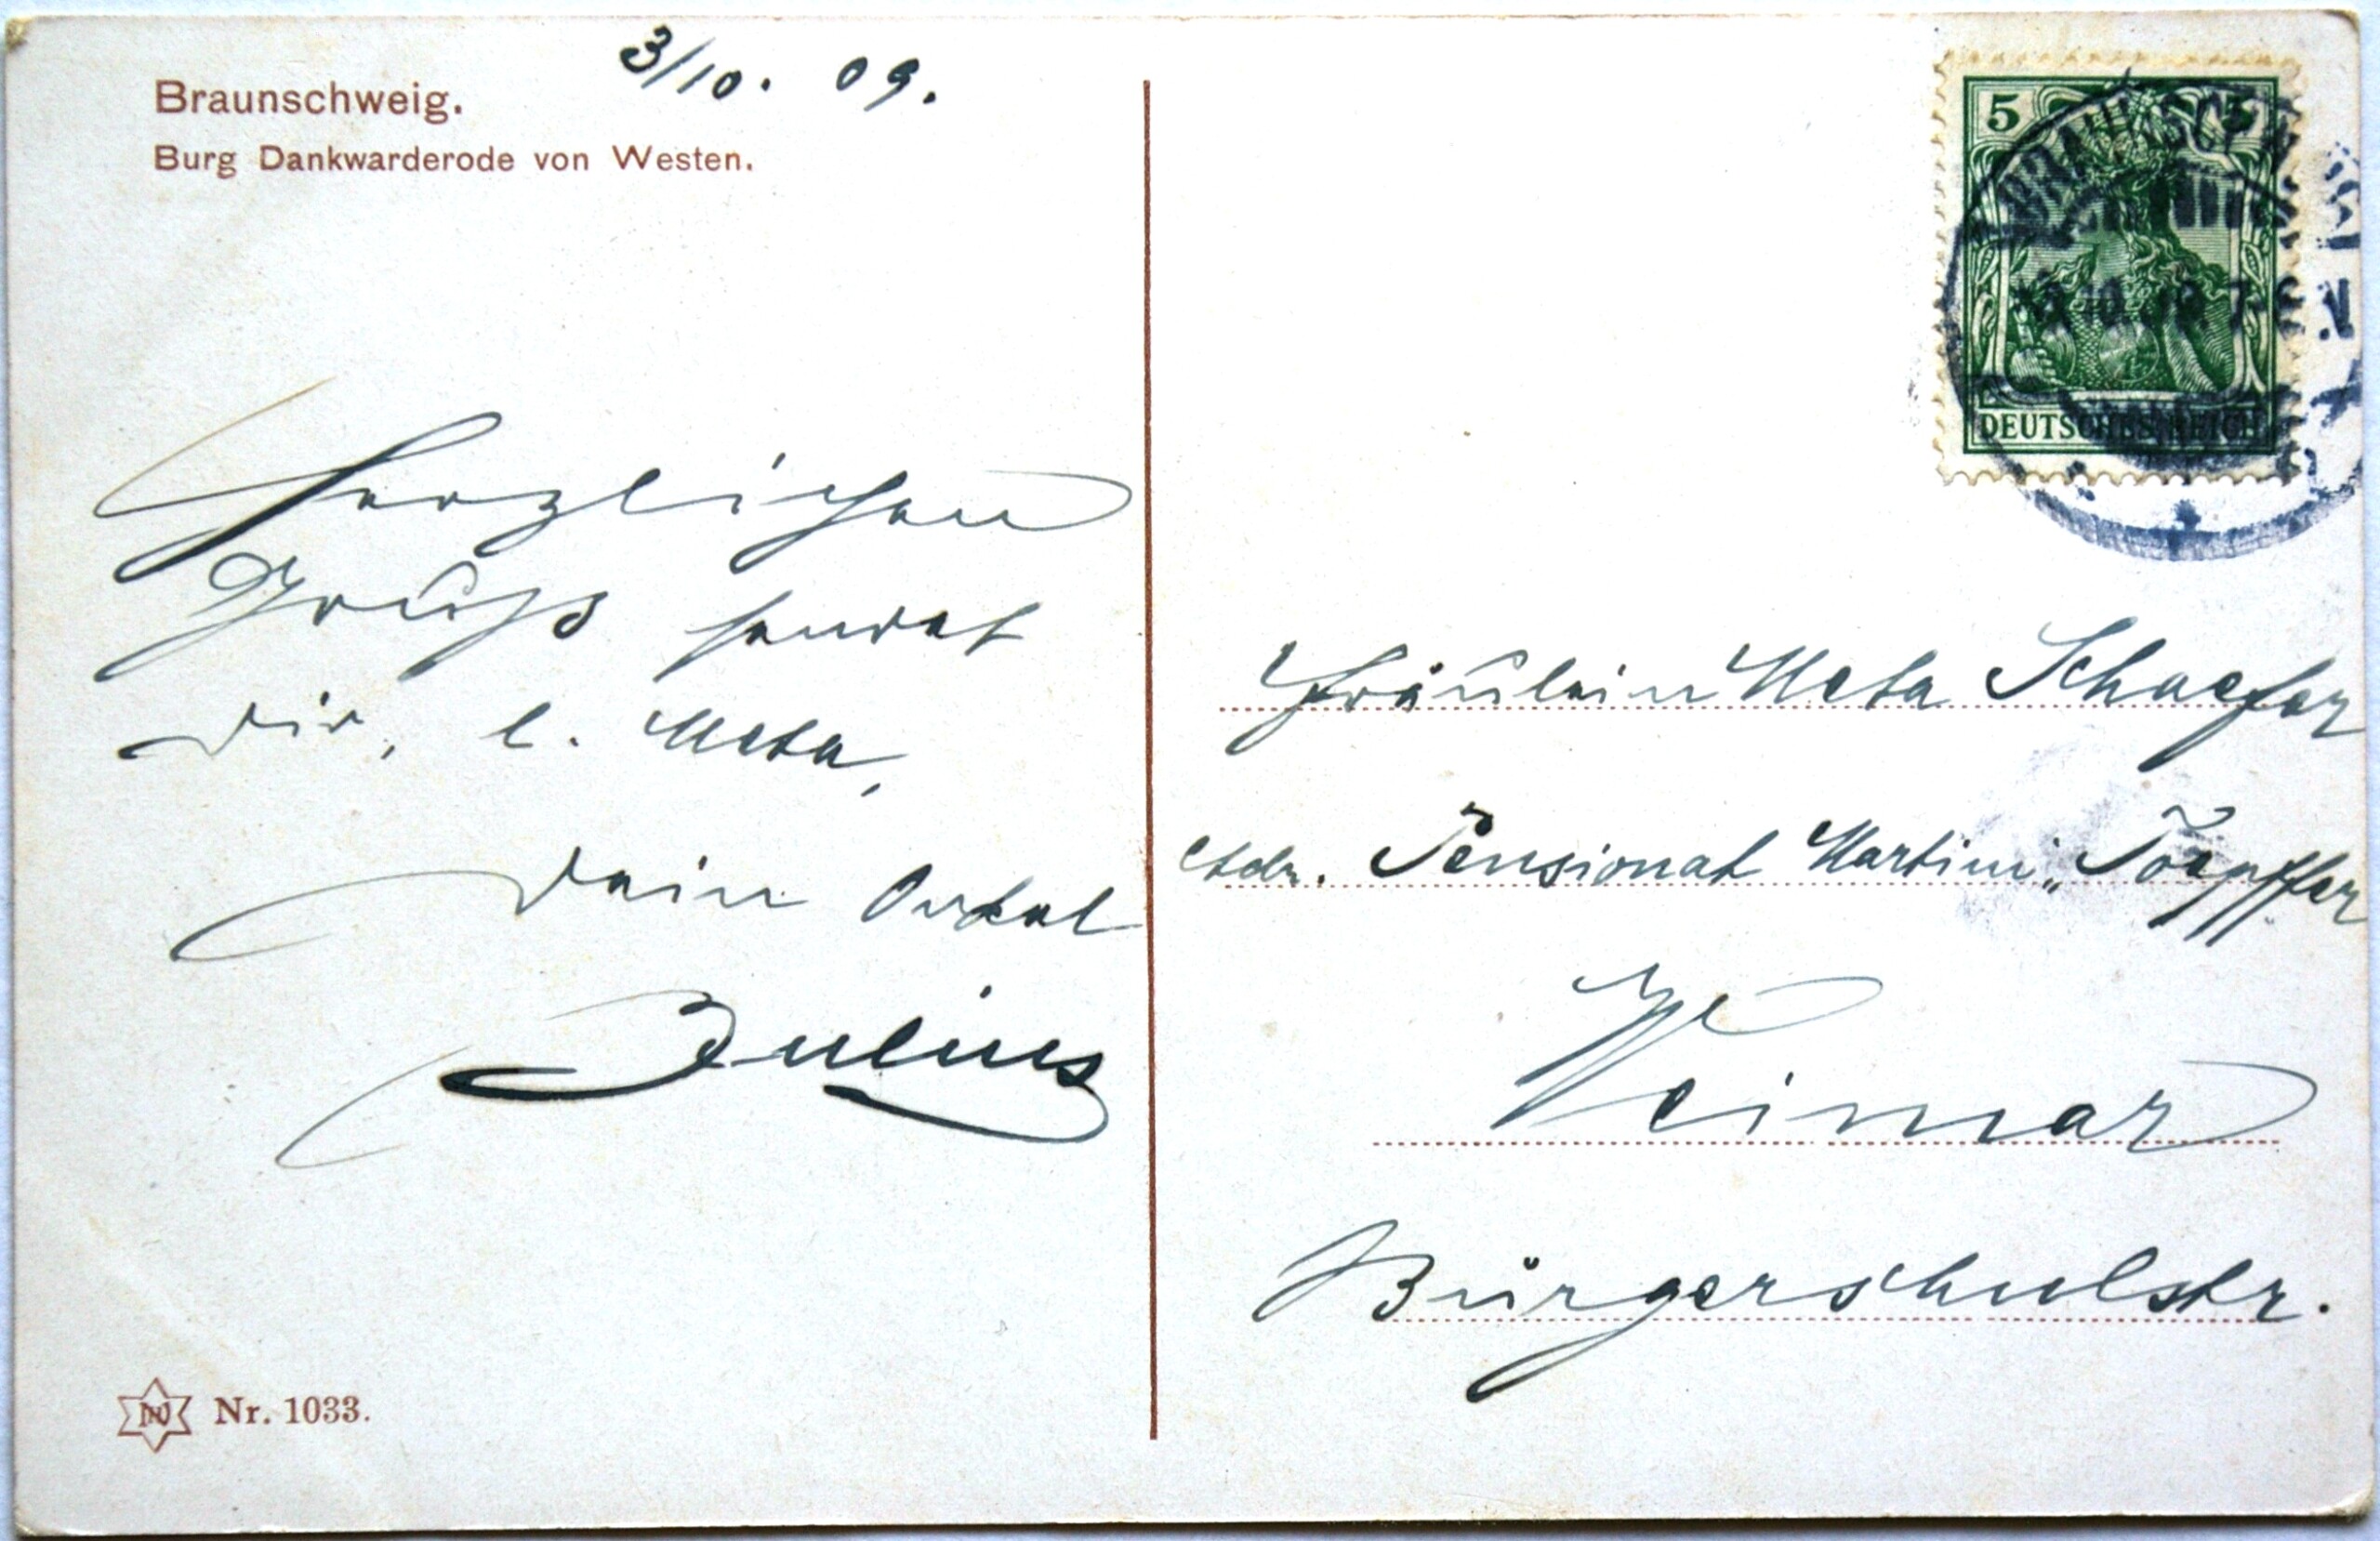 3/10. 09.
Braunschweig.
Burg Dankwarderode von Westen.
Herzlichen
Gruß sendet
Dir, l. Meta,
Dein Onkel
Julius
Nr. 1033.
5 5
BRAUNSCHW
DEUTSCHES REICH
Fräulein Meta Schaefer
Pensionat Martini, Toepffer
Weimar
Bürgerschulstr.